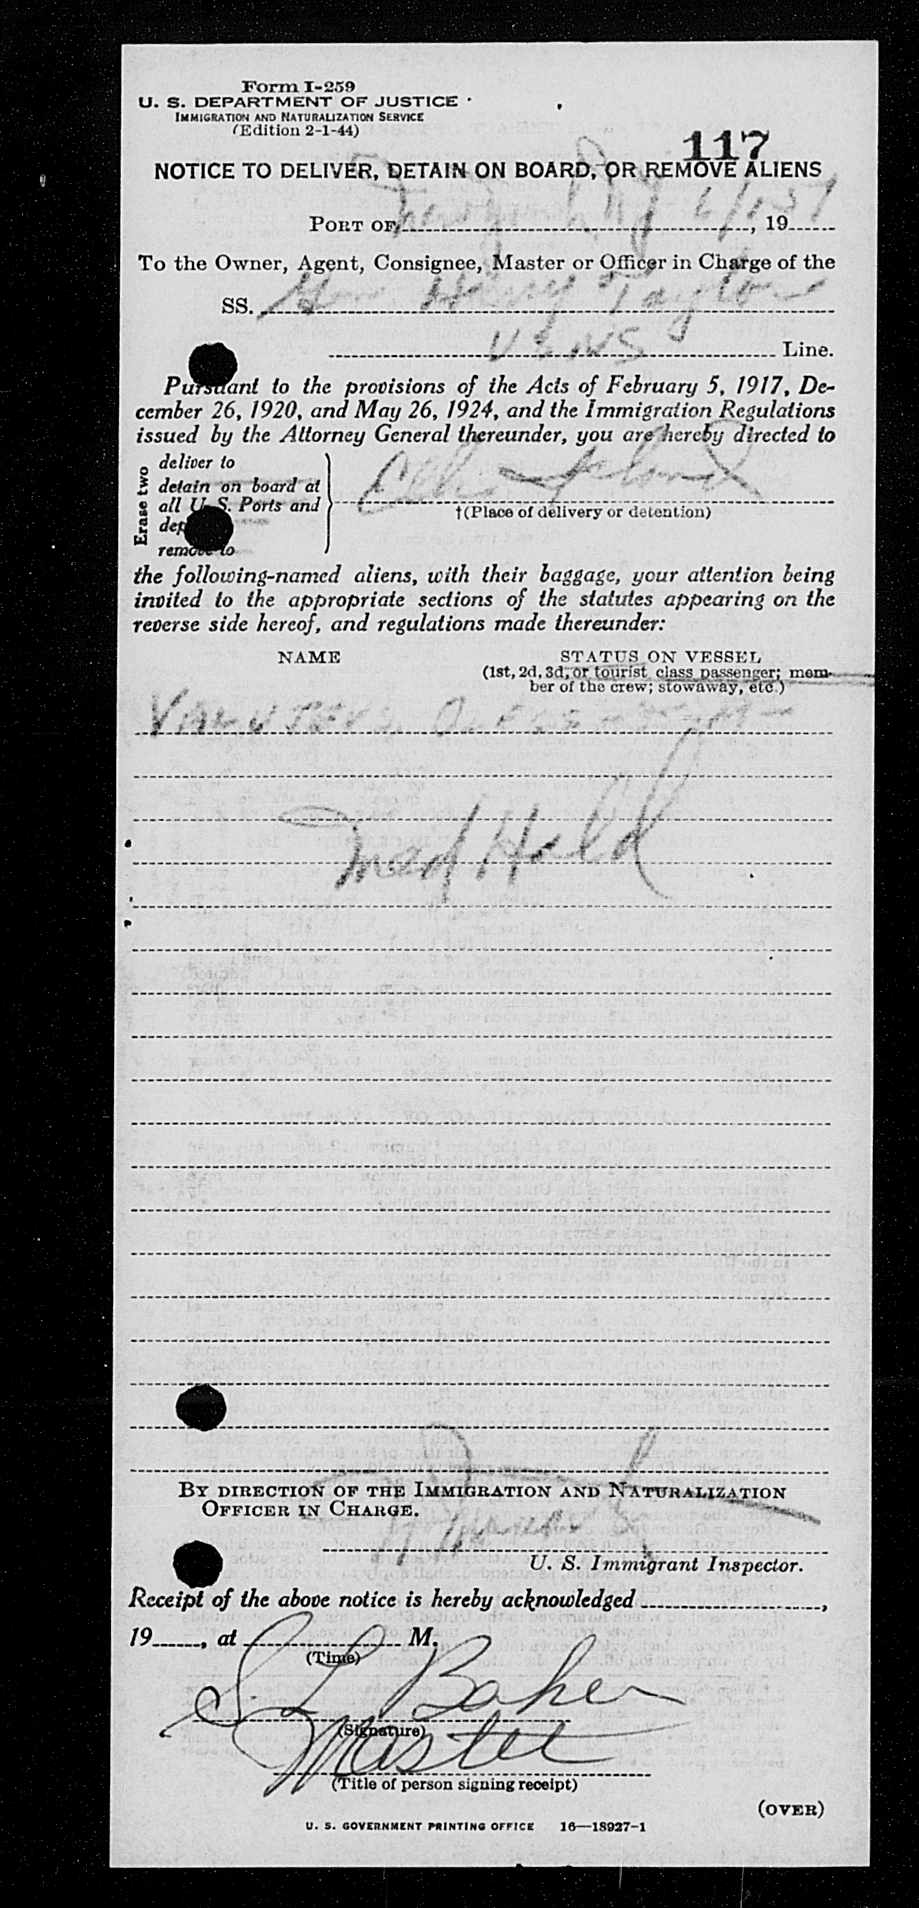 Form I-259
U. S. DEPARTMENT OF JUSTICE
IMMIGRATION AND NATURALIZATION SERVICE
(Edition 2-1-44)
117
NOTICE TO DELIVER, DETAIN ON BOARD, OR REMOVE ALIENS
PORT OF, 6/1/51, 19
To the Owner, Agent, Consignee, Master or Officer in Charge of the
SS. Gen. Harry Taylor
USNS Line.
Pursuant to the provisions of the Acts of February 5, 1917, De-
cember 26, 1920, and May 26, 1924, and the Immigration Regulations
issued by the Attorney General thereunder, you are hereby directed to
Erase two
deliver to
detain on board at
all U. S. Ports and
remove to
Ellis Island
†(Place of delivery or detention)
the following-named aliens, with their baggage, your attention being
invited to the appropriate sections of the statutes appearing on the
reverse side hereof, and regulations made thereunder:
NAME STATUS ON VESSEL
(1st, 2d, 3d, or tourist class passenger; mem-
ber of the crew; stowaway, etc.)
Med Hold
BY DIRECTION OF THE IMMIGRATION AND NATURALIZATION
OFFICER IN CHARGE.
U. S. Immigrant Inspector.
Receipt of the above notice is hereby acknowledged ,
19 , at M.
(Time)
S. L. Baker
(Signature)
Master
(Title of person signing receipt)
(OVER)
U. S. GOVERNMENT PRINTING OFFICE 16—18927-1